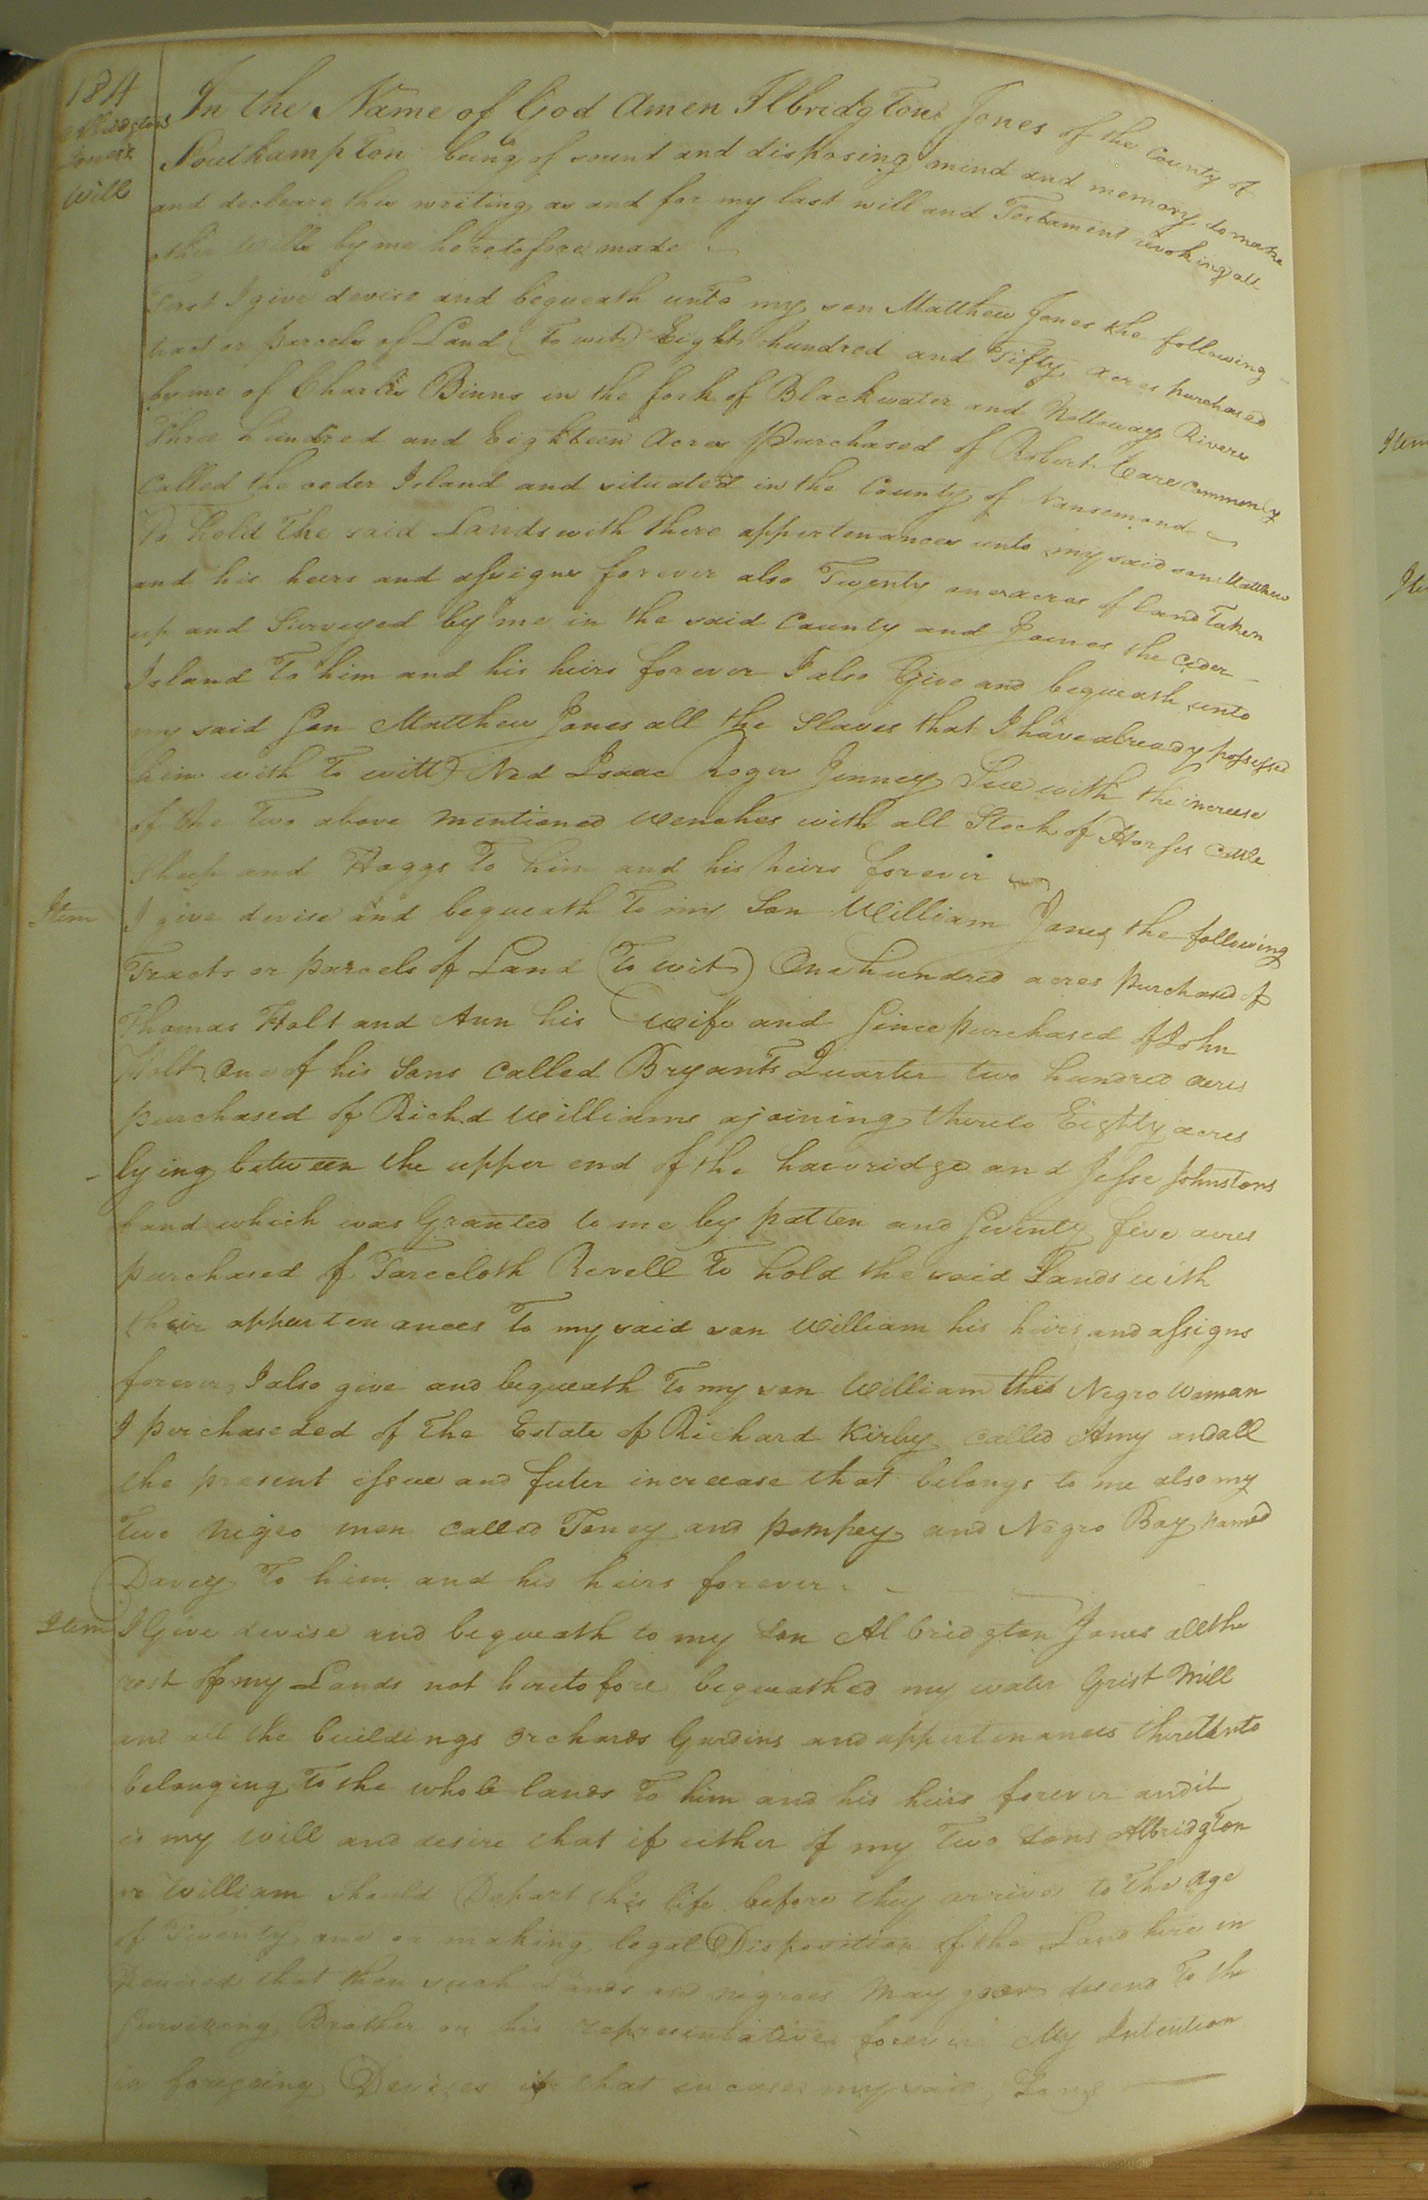 184
Albridgtons
Jones's
Will
In the Name of God Amen Albridgton Jones of the County of
Southampton being of sound and disposing mind and memory do make
and decleare this writing as and for my last will and Testament revoking all
other Wills by me heretofore made
First I give devise and bequeath unto my son Matthew Jones the following
tract or parcels of Land (To wit) Eight hundred and Fifty acres purchased
by me of Charles Binns in the fork of Blackwater and Nottoway Rivers
Three hundred and Eighteen Acres Purchased of Robert Carr commonly
Called the ceder Island and situated in the County of Nansemond
To hold The said Lands with there appertenances unto my said son Matthew
and his heirs and assigns forever also Twenty one acres of land Taken
up and Surveyed by me in the said County and Joines the Ceder
Island To him and his heirs forever I also Give and bequeath unto
my said Son Matthew Jones all the Slaves that I have already possessed
him with To witt) Ned Isaac Roger Jenney Sue with the increese
of the Two above mentioned wenches with all Stock of Horses Cattle
Sheep and Hoggs To him and his heirs forever
Item I give devise and bequeath To my Son William Jones the following
Tracts or parcels of Land (To wit) One hundred acres purchased of
Thomas Holt and Ann his Wife and Since purchased of John
Holt One of his Sons Called Bryants Quarter two hundred acres
purchased of Richd Williams ajoining thereto Eighty acres
lying between the upper end of the hawridge and Jesse Johnstons
Land which was Granted to me by patten and Seventy five acres
purchased of Farecloth Revell To hold the said Lands with
their appurtenances To my said son William his heirs and assigns
forever, I also give and bequeath To my son William this Negro Woman
I perchaseded of The Estate of Richard Kirby called Amy and all
the present issue and futer increease that belongs to me also my
Two Negro men called Toney and pompey and Negro Boy named
Davey To him and his heirs forever
Item I Give devise and bequeath to my Son Albridgton Jones all the
rest of my Lands not heretofore bequeathed my water Grist Mill
and all the buildings Orchards Gardins and appertenances thereunto
belonging To the whole lands To him and his heirs forever and it
is my will and desire that if either of my Two Sons Albridgton
or William should Depart this life before they arrive to The age
of Twenty one or making legal Disposition of the Land here in
Devised that then such Lands and negroes May desend To the
Surviveing Brother or his representatives forever My Intention
in foregoing Devises is that in case my said Sons
Item